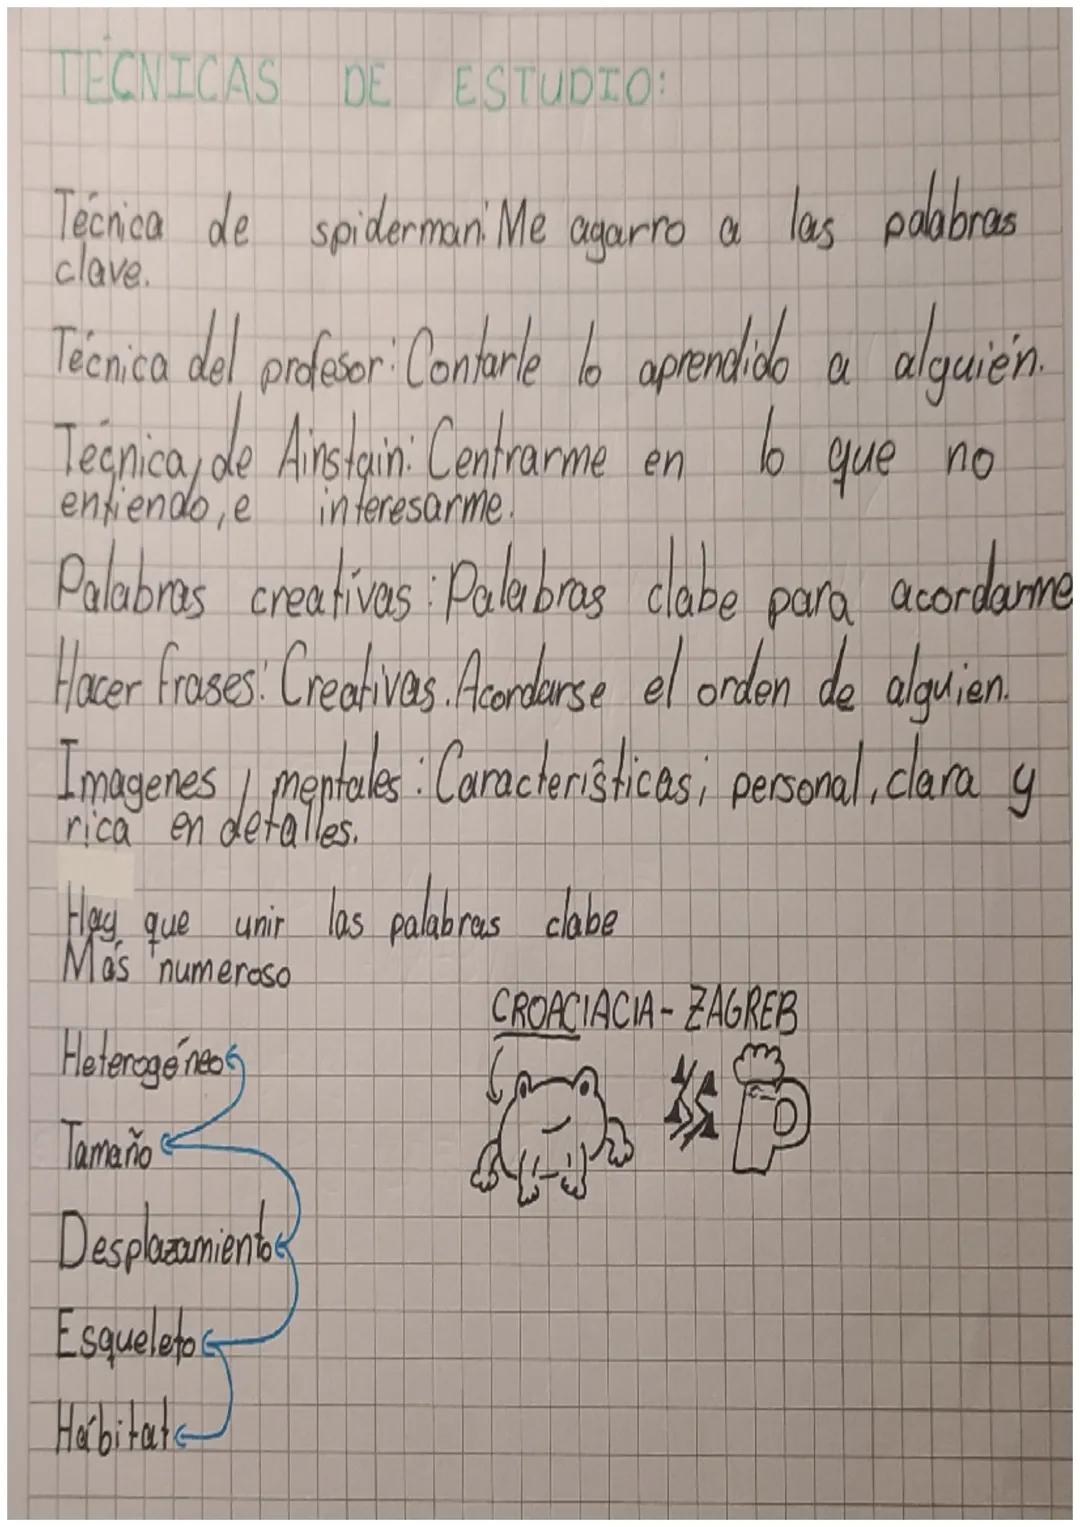 TÉCNICAS DE ESTUDIO:
Técnica de spiderman: Me agarro a las palabras
clave.
Técnica del profesor: Contarle lo aprendido a alguién.
Técnica, de Ainstain: Centrarme en lo que no
entiendo, e interesarme.
Palabras creativas: Palabras clabe para acordarme
Hacer frases: Creativas. Acordarse el orden de alguien.
Imagenes, mentales: Características; personal, clara y
rica en detalles.
Hay que unir las palabras clabe
Más numeroso
CROACIACIA - ZAGREB
Heterogéneo
Tamaño
Desplazamiento
Esqueleto
Hábitat